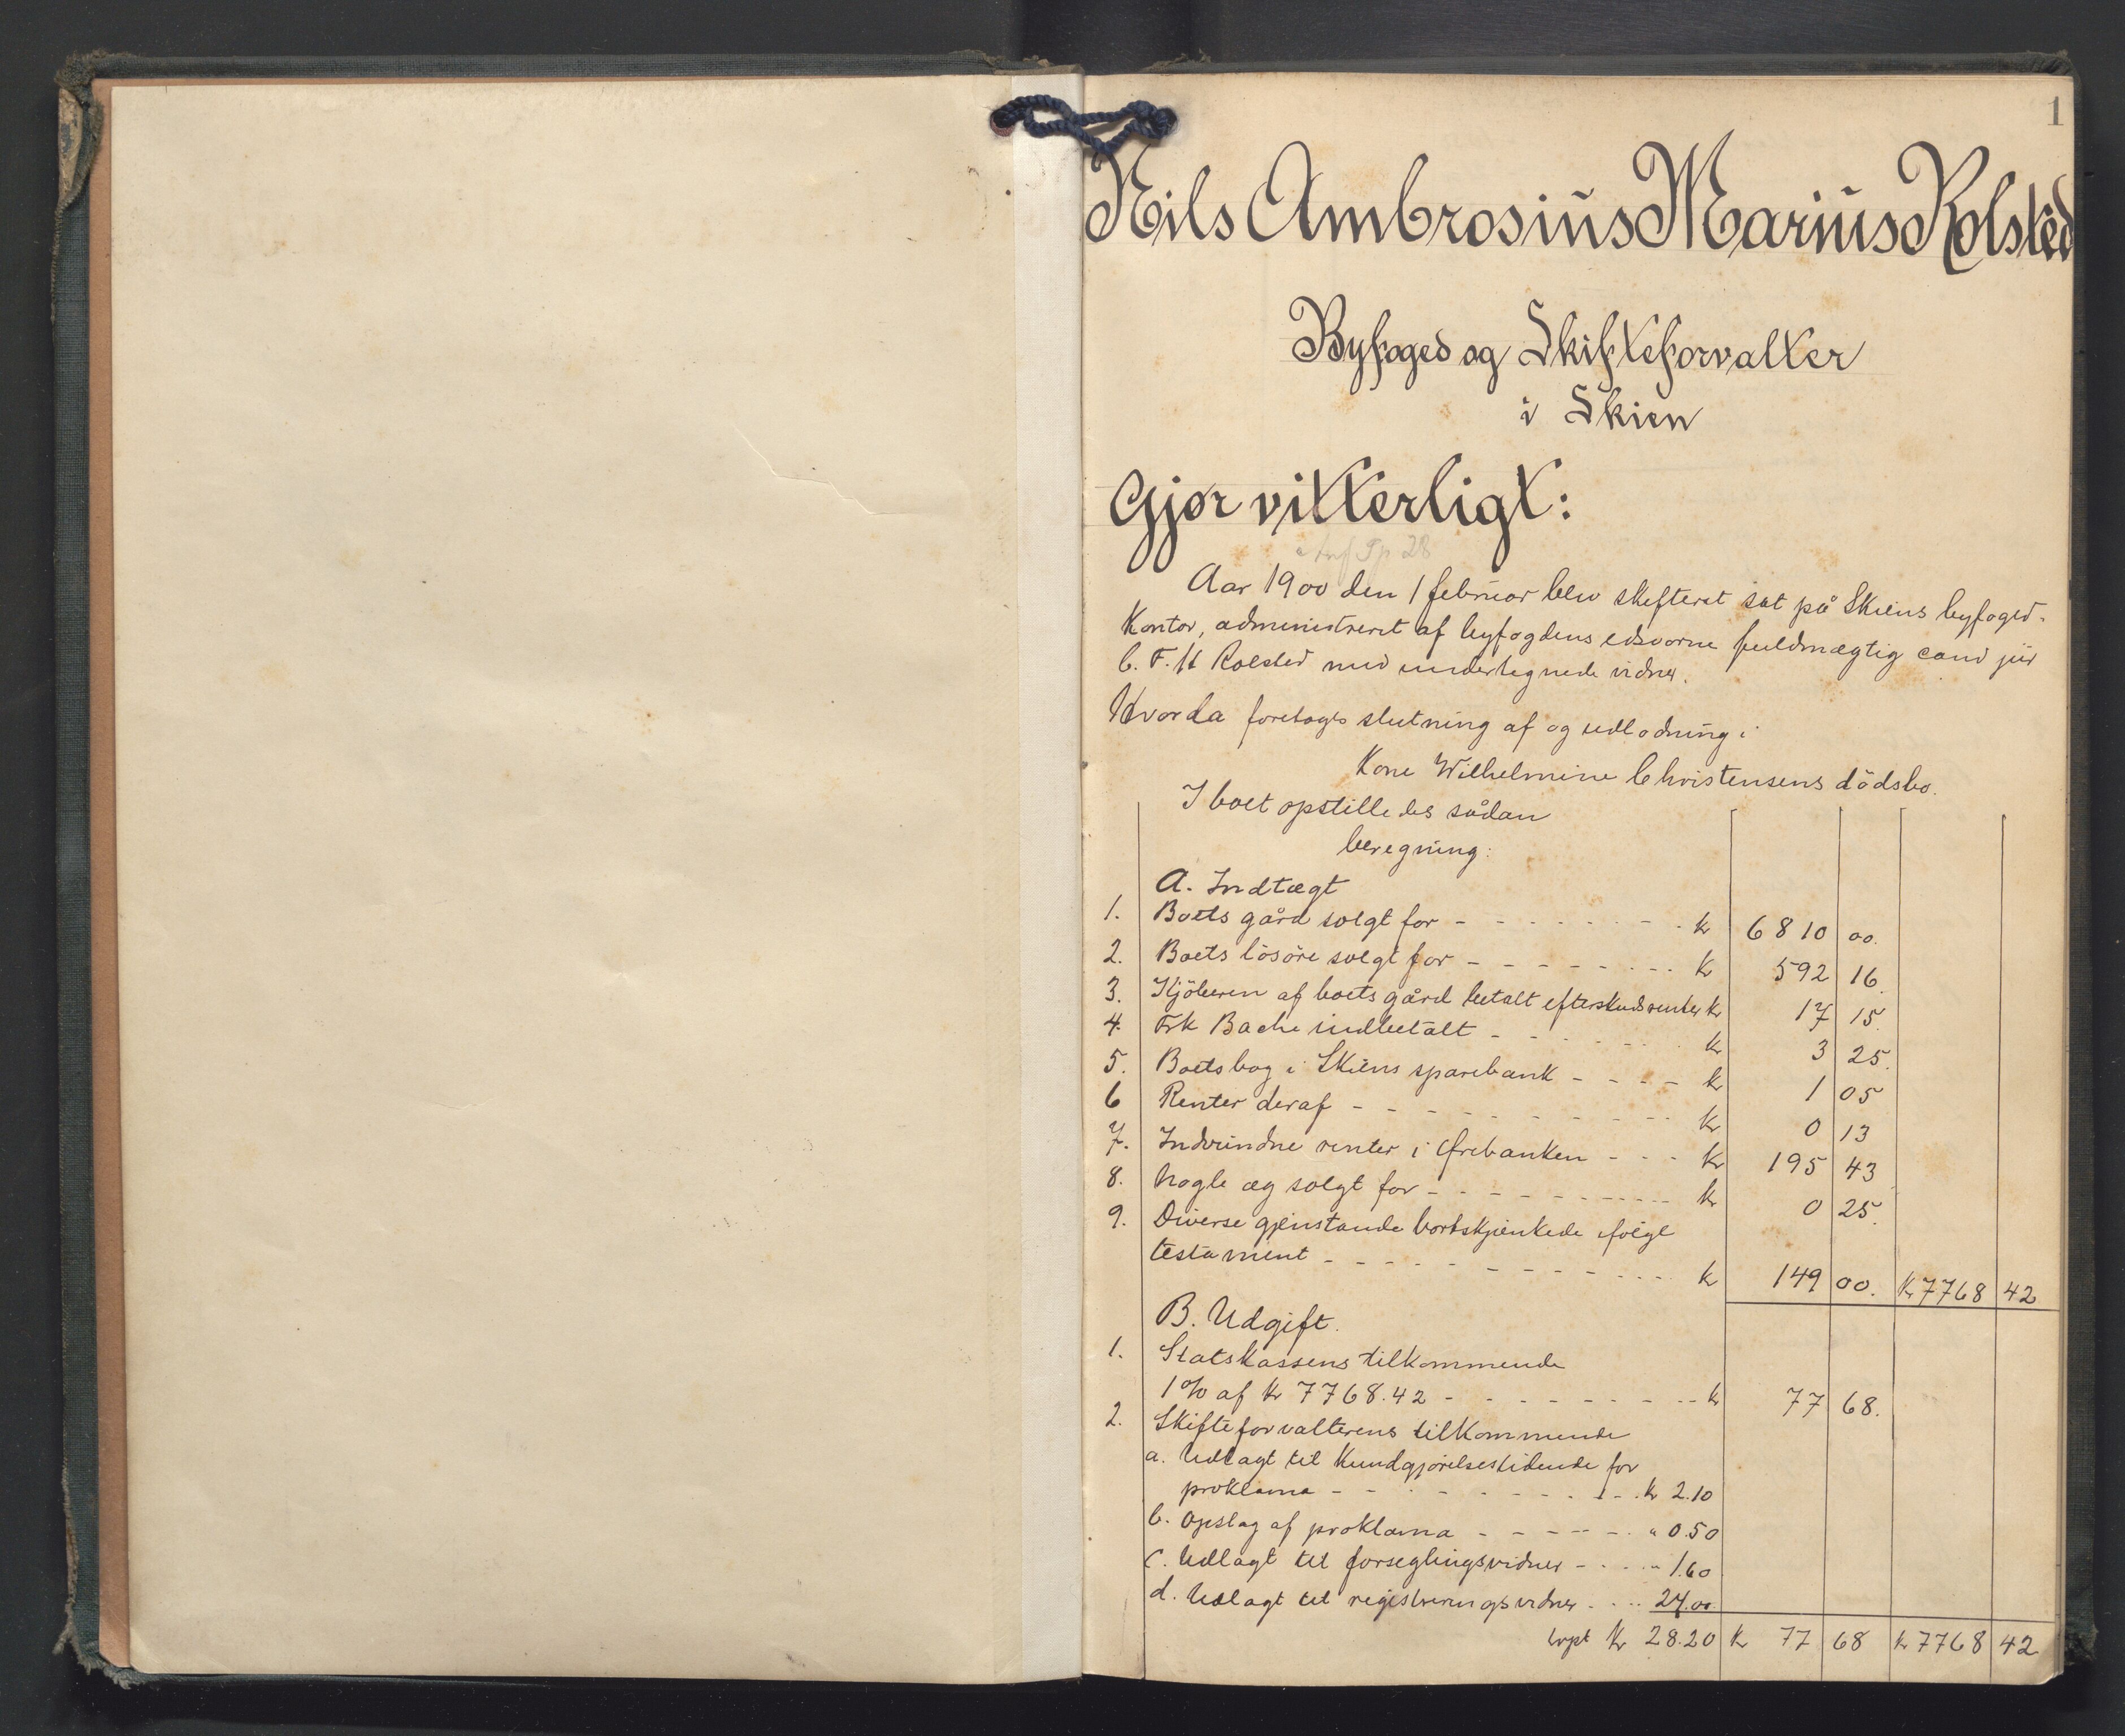 1
Nils Ambrosius Marius Rolsted
Byfoged og Skifteforvalter
i Skien
Gjør vitterligt:
Aar 1900 den 1 februar blev skifteret sat på Skiens byfoged-
kontor, administreret af byfogdens edsvorne fuldmægtig cand jur
C. F. H Rolsted med undertegnede vidner.
Hvorda foretoges slutning af og udlodning i
Kone Wilhelmine Christensens dödsbo.
I boet opstilledes sådan
beregning:
A. Indtægt
1. Boets gård solgt for - - - - - - - - kr 6810 00.
2. Boets lösöre solgt for - - - - - - - - kr 592 16.
3. Kjöberen af boets gård betalt efterskudsrenter kr 17 15.
4. Frk Bache indbetalt - - - - - - kr 3 25.
5. Boets bog i Skiens sparebank - - - - kr 1 05
6 Renter deraf - - - - - - - - - - kr 0 13
7. Indvundne renter i Ørebanken - - - kr 195 43
8. Nogle æg solgt for - - - - - - - - - kr 0 25.
9. Diverse gjenstande bortskjænkede ifölge
testament - - - - - - - - - - - kr 149 00. Kr 7768 42
B. Udgift.
1. Statskassens tilkommende
1% af kr 7768.42 - - - - - - - - - kr 77 68.
2. Skifteforvalterens tilkommende
a. Udlagt til Kundgjørelsestidende for
proklama - - - - - - - - - kr 2.10
b. Opslag af proklama - - - - - - " 0.50
c. Udlagt til forseglingsvidner - - - - 1.60
d. Udlagt til registreringsvidner - - - 24.00.
trpt Kr 28.20 Kr 77 68 Kr 7768 42